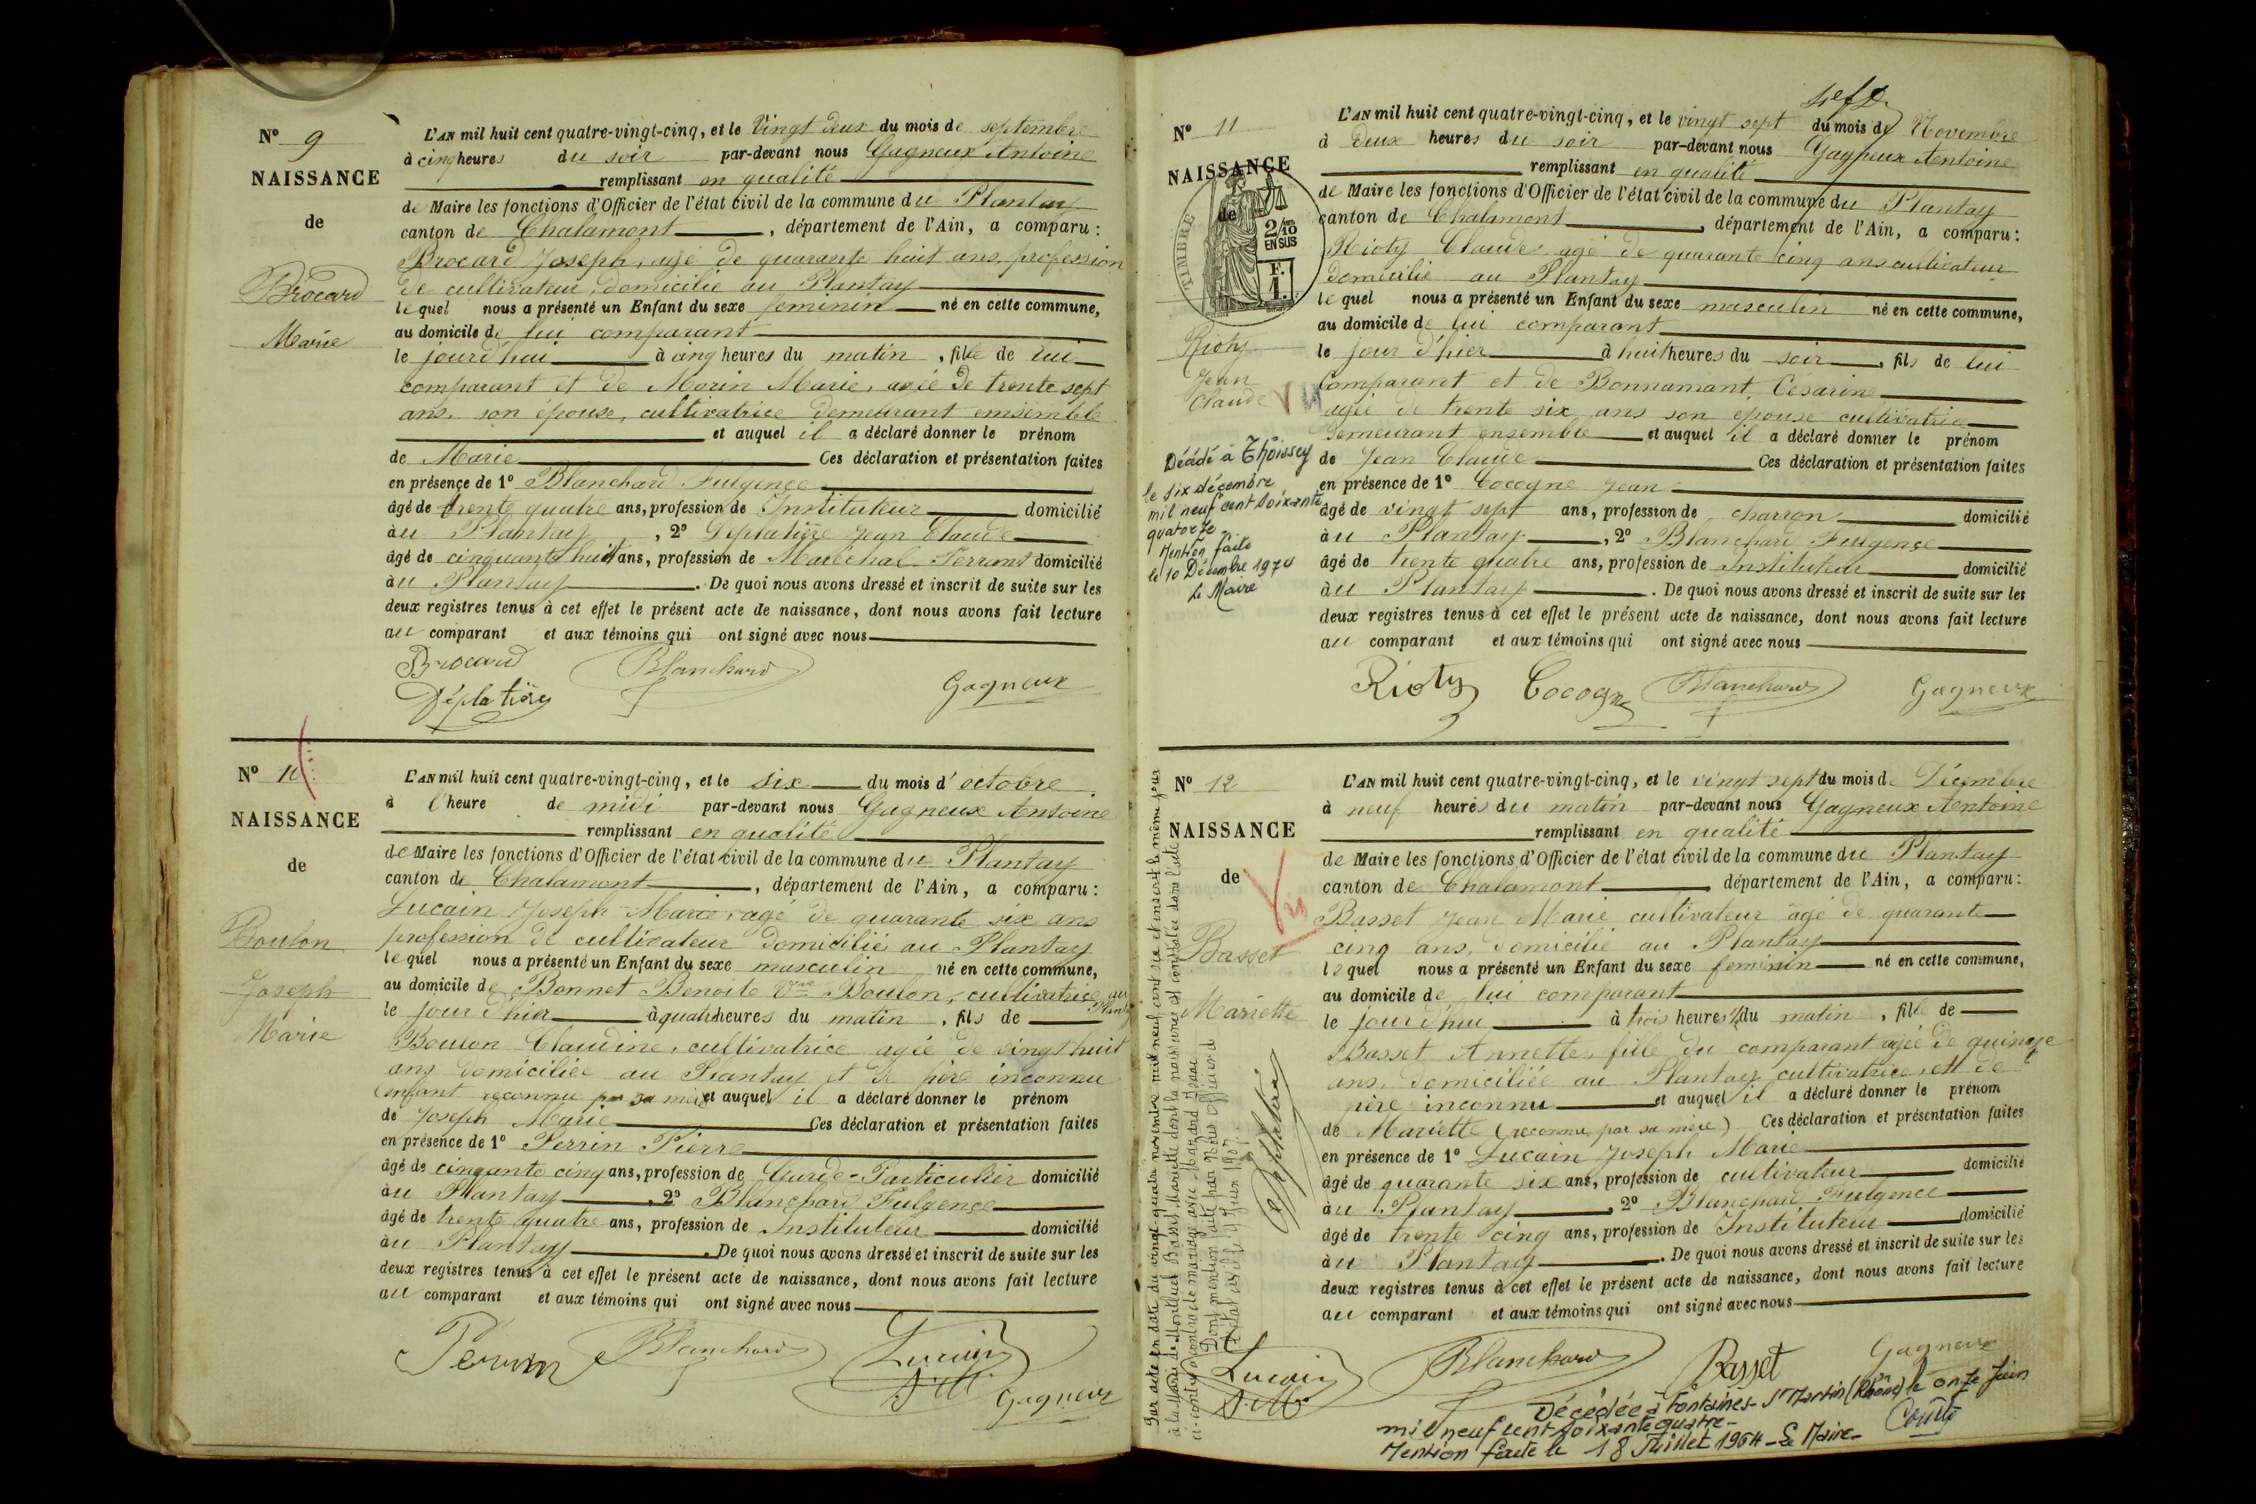 N° 9
NAISSANCE
de
Brocard
Marie
L'AN mil huit cent quatre-vingt-cinq, et le Vingt deux du mois de septembre
à cinq heures du soir par-devant nous Gagneux Antoine
remplissant en qualité
de Maire les fonctions d'Officier de l'état civil de la commune du Plantay
canton de Chalamont, département de l'Ain, a comparu :
Brocard Joseph, agé de quarante huit ans, profession
de cultivateur, domicilié au Plantay
lequel nous a présenté un Enfant du sexe feminin né en cette commune,
au domicile de lui comparant
le jourd'hui à cinq heures du matin, fille de lui
comparant et de Morin Marie, agée de trente sept
ans, son épouse, cultivatrice demeurant ensemble
et auquel il a déclaré donner le prénom
de Marie Ces déclaration et présentation faites
en présence de 1° Blanchard Fulgence
âgé de trente quatre ans, profession de Instituteur domicilié
au Plantay, 2° Déplatière Jean Claude
âgé de cinquante huit ans, profession de Maréchal Ferrant domicilié
au Plantay. De quoi nous avons dressé et inscrit de suite sur les
deux registres tenus à cet effet le présent acte de naissance, dont nous avons fait lecture
au comparant et aux témoins qui ont signé avec nous
Brocard Blanchard
Déplatière Gagneux
N° 10
NAISSANCE
de
Bouton
Joseph
Marie
L'AN mil huit cent quatre-vingt-cinq, et le six du mois d'octobre
à l'heure de midi par-devant nous Gagneux Antoine
remplissant en qualité
de Maire les fonctions d'Officier de l'état civil de la commune du Plantay
canton de Chalamont, département de l'Ain, a comparu :
Lucain Joseph-Marie, agé de quarante six ans
profession de cultivateur domicilié au Plantay
lequel nous a présenté un Enfant du sexe masculin né en cette commune,
au domicile de Bonnet Benoite Vve Bouton, cultivatrice au Plantay
le jour d'hier à quatre heures du matin, fils de
Bouton Claudine, cultivatrice agée de vingt huit
ans domiciliée au Plantay et de père inconnu
(enfant reconnu par sa mère et auquel il a déclaré donner le prénom
de Joseph Marie Ces déclaration et présentation faites
en présence de 1° Perrin Pierre
âgé de cinquante cinq ans, profession de Garde-Particulier domicilié
au Plantay, 2° Blanchard Fulgence
âgé de trente quatre ans, profession de Instituteur domicilié
au Plantay. De quoi nous avons dressé et inscrit de suite sur les
deux registres tenus à cet effet le présent acte de naissance, dont nous avons fait lecture
au comparant et aux témoins qui ont signé avec nous
Perrin Blanchard Lucain
J.M. Gagneux
N° 11
NAISSANCE
de
TIMBRE
2/10
EN SUS
F.
1.
Rioty
Jean
Claude
Décédé à Thoissey
le six décembre
mil neuf cent soixante
quatorze
Mention faite
le 10 Décembre 1974
Le Maire
L'AN mil huit cent quatre-vingt-cinq, et le vingt sept du mois de Novembre
à deux heures du soir par-devant nous Gagneux Antoine
remplissant en qualité
de Maire les fonctions d'Officier de l'état civil de la commune du Plantay
canton de Chalamont, département de l'Ain, a comparu :
Rioty Claude agé de quarante cinq ans cultivateur
domicilié au Plantay
lequel nous a présenté un Enfant du sexe masculin né en cette commune,
au domicile de lui comparant
le jour d'hier à huit heures du soir, fils de lui
comparant et de Bonnamant, Cesarine
agée de trente six ans son épouse cultivatrice
demeurant ensemble et auquel il a déclaré donner le prénom
de Jean Claude Ces déclaration et présentation faites
en présence de 1° Cocogne Jean
âgé de vingt sept ans, profession de charron domicilié
au Plantay, 2° Blanchard Fulgence
âgé de trente quatre ans, profession de Instituteur domicilié
au Plantay. De quoi nous avons dressé et inscrit de suite sur les
deux registres tenus à cet effet le présent acte de naissance, dont nous avons fait lecture
au comparant et aux témoins qui ont signé avec nous
Rioty Cocogne Blanchard Gagneux
N° 12
NAISSANCE
de
Basset
Mariette
Par acte en date du vingt-quatre novembre mil neuf cent six et inscrit le même jour
à la Mairie de Montluel Basset Mariette dont la naissance est constatée dans l'acte
ci-contre a contracté mariage avec Morand Isaac
Dont mention faite par Nous Officier de
l'état civil le 9 Juin 1907.
Déplatière
L'AN mil huit cent quatre-vingt-cinq, et le vingt sept du mois de Décembre
à neuf heures du matin par-devant nous Gagneux Antoine
remplissant en qualité
de Maire les fonctions d'Officier de l'état civil de la commune du Plantay
canton de Chalamont, département de l'Ain, a comparu :
Basset Jean Marie cultivateur agé de quarante
cinq ans, domicilié au Plantay
lequel nous a présenté un Enfant du sexe feminin né en cette commune,
au domicile de lui comparant
le jourd'hui à trois heures ½ du matin, fille de
Basset Annette, fille du comparant agée de quinze
ans, domiciliée au Plantay cultivatrice, et de
père inconnu et auquel il a déclaré donner le prénom
de Mariette (reconnue par sa mère) Ces déclaration et présentation faites
en présence de 1° Lucain Joseph Marie
âgé de quarante six ans, profession de cultivateur domicilié
au Plantay, 2° Blanchard Fulgence
âgé de trente cinq ans, profession de Instituteur domicilié
au Plantay. De quoi nous avons dressé et inscrit de suite sur les
deux registres tenus à cet effet le présent acte de naissance, dont nous avons fait lecture
au comparant et aux témoins qui ont signé avec nous
Lucain Blanchard Basset Gagneux
J.M.
Décédée à Fontaines-St Martin (Rhône) le onze Juin
mil neuf cent soixante quatre-
Mention faite le 18 Juillet 1964 - Le Maire-